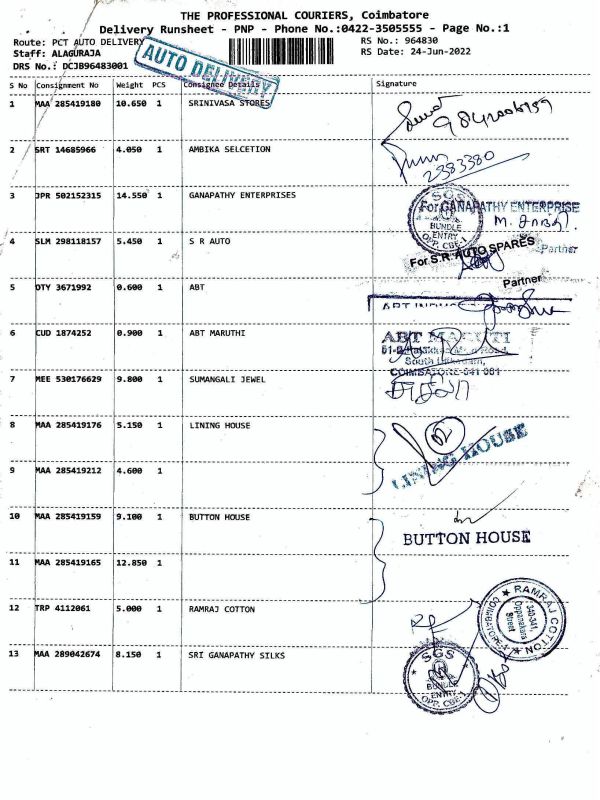 THE PROFESSIONAL COURIERS, Coimbatore
Delivery Runsheet - PNP - Phone No.:0422-3505555 - Page No.:1
Route: PCT AUTO DELIVERY
RS No.: 964830
Staff: ALAGURAJA
RS Date: 24-Jun-2022
DRS No.: DCJB96483001
AUTO DELIVERY
S No Consignment No Weight PCS Consignee Details Signature
1 MAA 285419180 10.650 1 SRINIVASA STORES
2 SRT 14685966 4.050 1 AMBIKA SELCETION
2383380
3 JPR 502152315 14.550 1 GANAPATHY ENTERPRISES
For GANAPATHY ENTERPRISE
SGS
BUNDLE
ENTRY
OPP. CBE-1
Partner
4 SLM 298118157 5.450 1 S R AUTO
For S.R. AUTO SPARES
Partner
5 DTY 3671992 0.600 1 ABT
6 CUD 1874252 0.900 1 ABT MARUTHI
ABT MARUTI
COIMBATORE-641 001
7 MEE 530176629 9.800 1 SUMANGALI JEWEL
8 MAA 285419176 5.150 1 LINING HOUSE
LINING HOUSE
9 MAA 285419212 4.600 1
10 MAA 285419159 9.100 1 BUTTON HOUSE
BUTTON HOUSE
11 MAA 285419165 12.850 1
12 TRP 4112061 5.000 1 RAMRAJ COTTON
RAMRAJ COTTON
COIMBATORE-1
340-341,
Oppanakara
Street
13 MAA 289042674 8.150 1 SRI GANAPATHY SILKS
SGS
BUNDLE
ENTRY
OPP. CBE-1